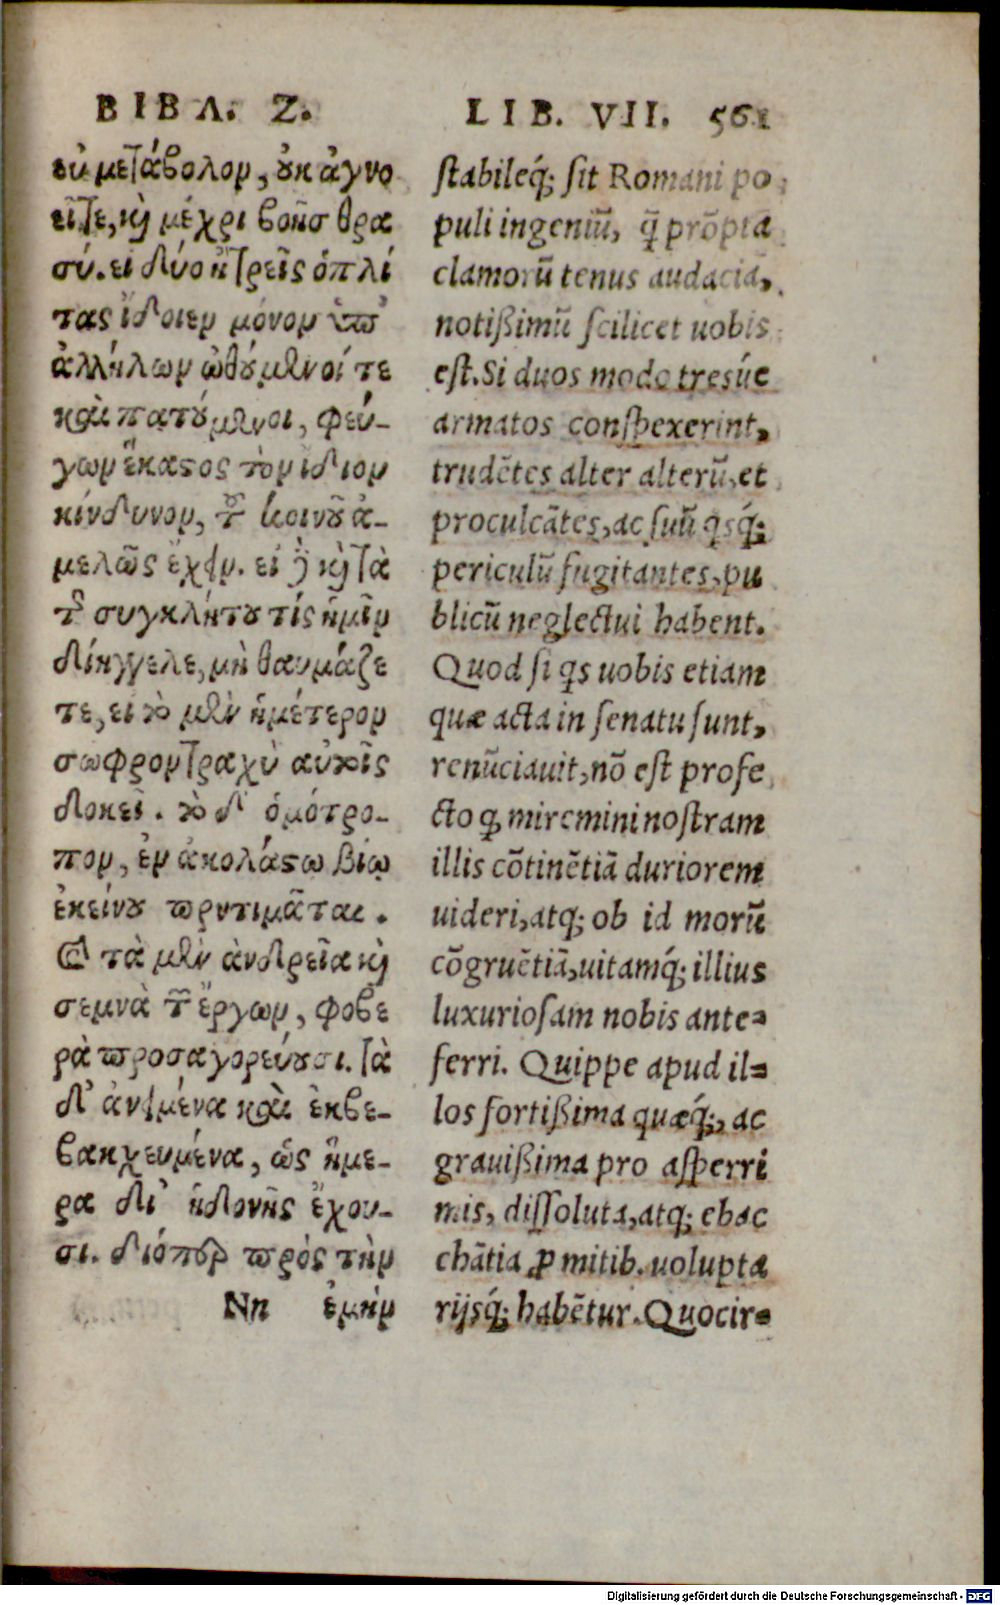 ΒΙΒΛ. Ζ.
εὐμετάβολον, ȣκ ἀγνο
εῖτε, κỳ μέχρι βοῆσ θρα
σύ. εἰ δύο ἢ τρεῖς ὁπλί
τας ἴδοιεν μόνον ὑπ'
ἀλλήλων ὠθȣ́μενοί τε
καὶ πατȣ́μενοι, φεύ-
γων ἕκαστος τὸν ἴδιον
κίνδυνον, τοῦ κοινȣ͂ ἀ-
μελῶς ἔχειν. εἰ δὲ κỳ τὰ
τῆς συγκλήτȣ τίς ἡμῖν
διήγγελε, μὴ θαυμάζε
τε, εἰ τὸ μὲν ἡμέτερον
σωφρον τραχὺ αὐτοῖς
δοκεῖ. τὸ δ' ὁμότρο-
πον, ἐν ἀκολάστω βίῳ
ἐκείνȣ προτιμᾶται.
τὰ μὲν ἀνδρεῖα κỳ
σεμνὰ τῶν ἔργων, φοβε
ρὰ προσαγορεύȣσι. τὰ
δ' ἀνειμένα καὶ ἐκβε-
βακχευμένα, ὡς ἥμε-
ρα δι' ἡδονῆς ἔχου-
σι. διόπερ πρὸς τὴν
Nn ἐμὴν
LIB. VII. 561
stabileq́; sit Romani po
puli ingeniũ, q̃ prõpta
clamorũ tenus audacia,
notißimũ scilicet uobis
est. Si duos modo tresúe
armatos conspexerint,
trudẽtes alter alterũ, et
proculcãtes, ac suũ qsq́;
periculũ fugitantes, pu
blicũ neglectui habent.
Quod si qs uobis etiam
quæ acta in senatu sunt,
renũciauit, nõ est profe
cto q, miremini nostram
illis cõtinẽtiã duriorem
uideri, atq; ob id morũ
cõgruẽtiã, uitamq́; illius
luxuriosam nobis ante=
ferri. Quippe apud il=
los fortißima quæq́;, ac
grauißima pro asperri
mis, dissoluta, atq; ebac
chãtia ꝓ mitib. uolupta
rijsq́; habẽtur. Quocir=
Digitalisierung gefördert durch die Deutsche Forschungsgemeinschaft - DFG